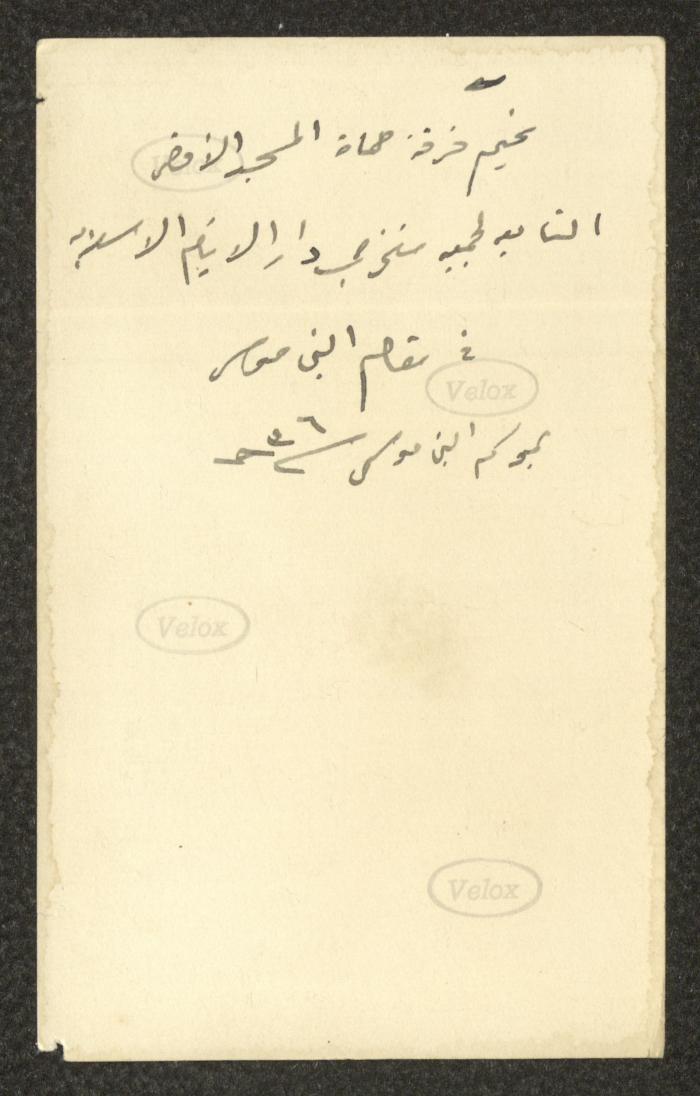 مخيم فرقة حماة المسجد الاقصى
التابعه لجمعيه متخرجي دار الايتام الاسلاميه
في مقام النبي موسى
بموسم النبي موسى سنة
Velox
Velox
Velox
Velox